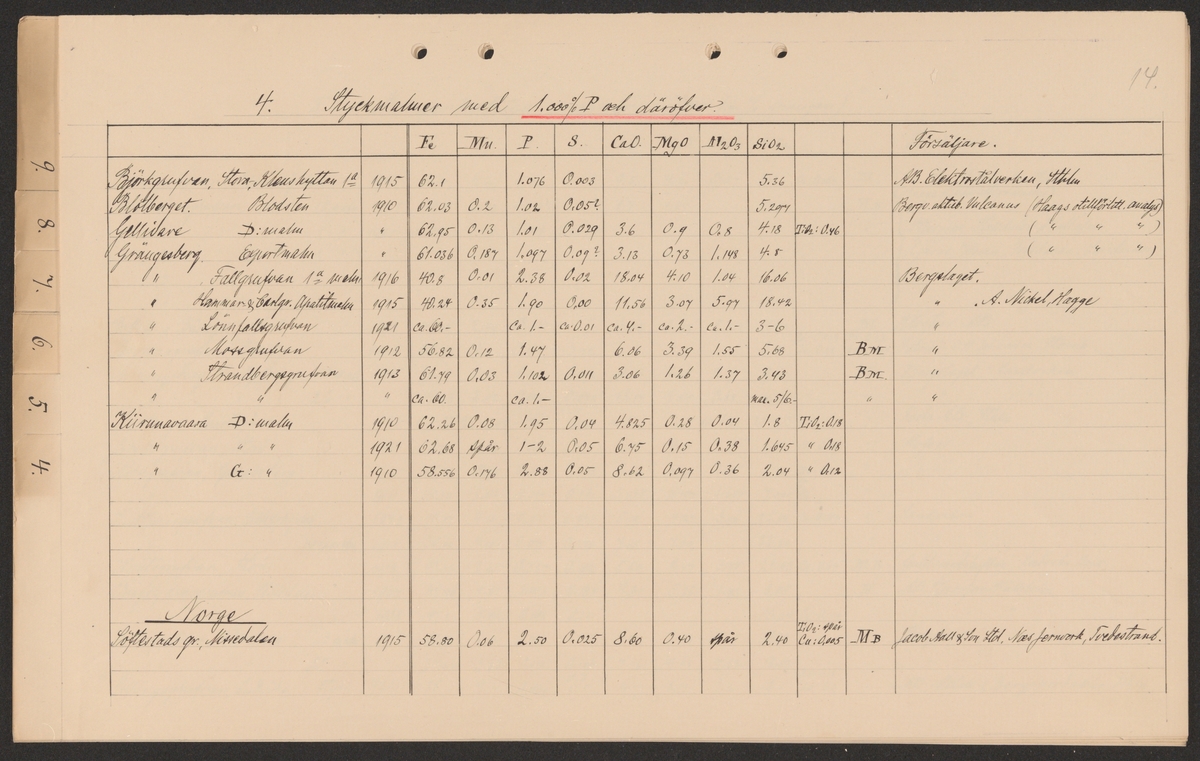 14.
4. Styckmalmer med 1.000% P och däröfver.
Fe Mn. P. S. CaO. MgO Al2O3 SiO2 Försäljare.
Björkgrufvan, Stora, Klenshyttan 1a 1915 62.1 1.076 0.003 5.36 A.B. Elektrostålverken, Sthlm
Blötberget. Blodsten 1910 62.03 0.2 1.02 0.05? 5.297 Bergv. aktieb. Vulcanus (Haags otillförlitl. analys)
Gellivare D: malm " 62.95 0.13 1.01 0.029 3.6 0.9 0.8 4.18 TiO2: 0.46 ( " " " )
Grängesberg. Exportmalm " 61.036 0.187 1.097 0.09? 3.13 0.73 1.148 4.8 ( " " " )
" Fallgrufvan 1a malm 1916 40.8 0.01 2.38 0.02 18.04 4.10 1.04 16.06 Bergslaget.
" Hammar & Carlgr. Apatitmalm 1915 40.24 0.35 1.90 0.00 11.56 3.07 5.97 18.42 " A. Nickel, Hagge
" Lönnfallsgrufvan 1921 ca. 60.- ca. 1.- ca 0.01 ca. 4.- ca. 2.- ca. 1.- 3-6 "
" Morsgrufvan 1912 56.82 0.12 1.47 6.06 3.39 1.55 5.68 B M. "
" Strandbergsgrufvan 1913 61.79 0.03 1.102 0.011 3.06 1.26 1.37 3.43 B M. "
" " " ca. 60. ca. 1.- max. 5/6.- " "
Kiirunavaara D: malm 1910 62.26 0.08 1.95 0.04 4.825 0.28 0.04 1.8 TiO2: 0.18
" " " 1921 62.68 spår 1-2 0.05 6.75 0.15 0.38 1.645 " 0.18
" G: " 1910 58.556 0.176 2.88 0.05 8.62 0.097 0.36 2.04 " 0.12
Norge
Söftestads gr., Nissedalen 1915 58.80 0.06 2.50 0.025 8.60 0.40 spår 2.40 TiO2: spår Cu: 0.005 M B Jacob Aall & Son Ltd. Næs Jernværk, Tvedestrand.
9.
8.
7.
6.
5.
4.